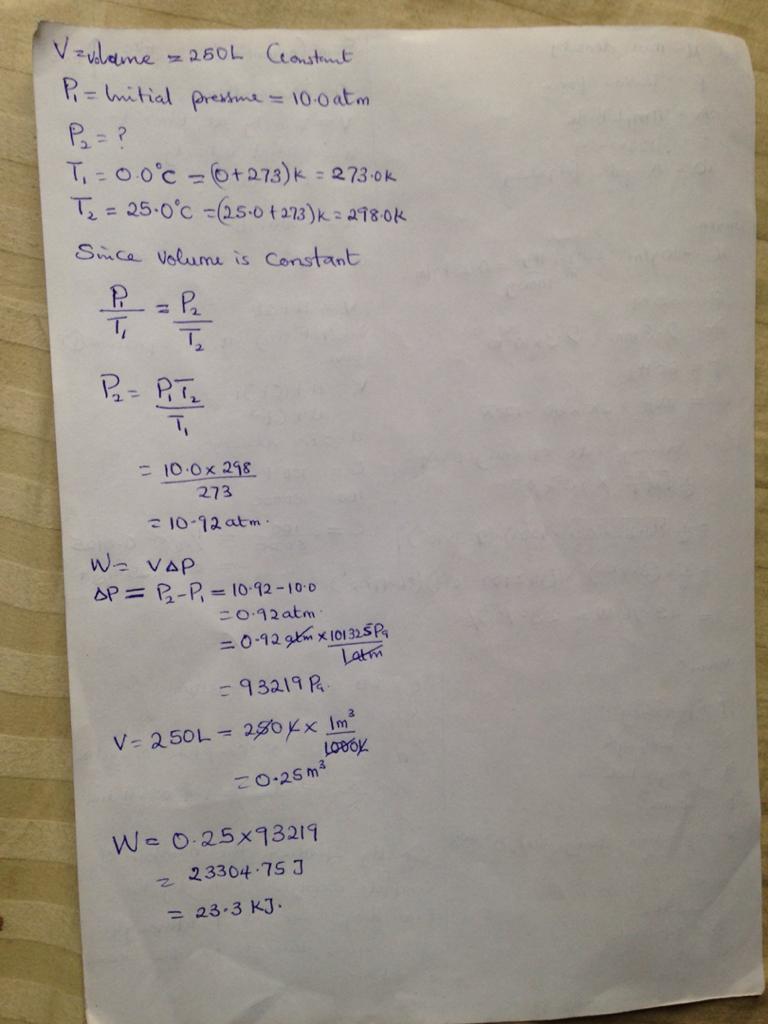 V = volume = 250L Constant
P₁ = Initial pressure = 10.0 atm
P₂ = ?
T₁ = 0.0°C = (0+273)K = 273.0K
T₂ = 25.0°C = (25.0+273)K = 298.0K
Since volume is constant
P₁/T₁ = P₂/T₂
P₂ = P₁T₂/T₁
= 10.0 × 298/273
= 10.92 atm.
W = VΔP
ΔP = P₂-P₁ = 10.92-10.0
= 0.92 atm.
= 0.92 atm × 101325Pa/1atm
= 93219 Pa.
V = 250L = 250L × 1m³/1000L
= 0.25m³
W = 0.25×93219
= 23304.75 J
= 23.3 KJ.